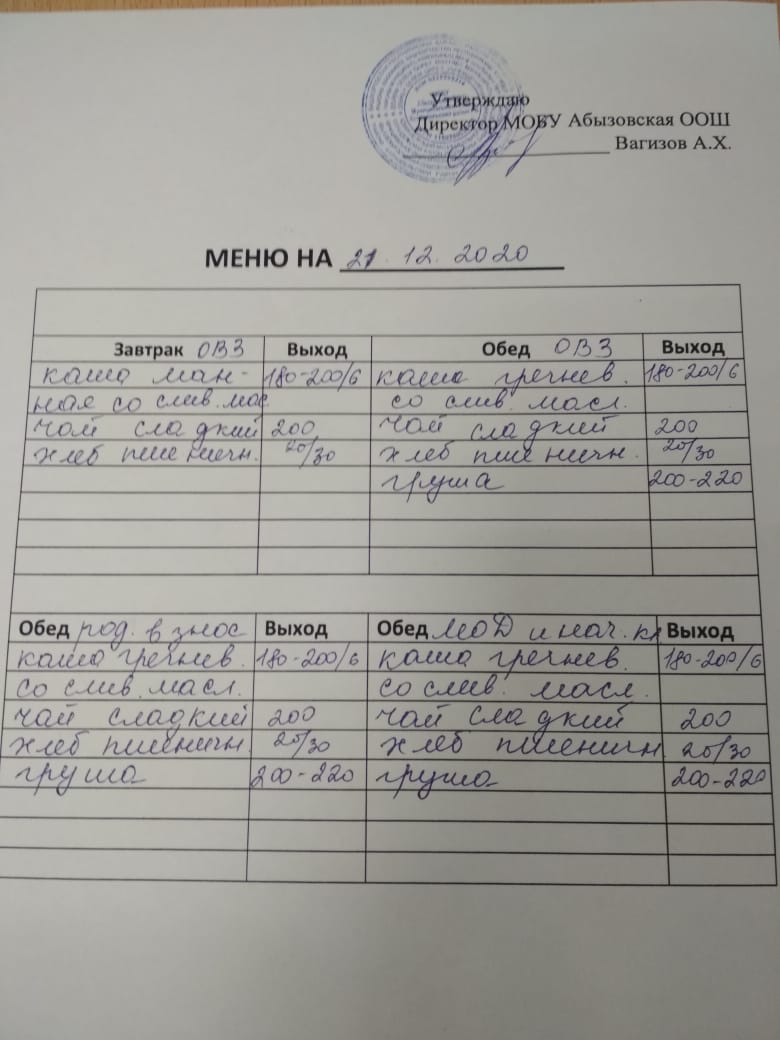 Утверждаю
Директор МОБУ Абызовская ООШ
Вагизов А.Х.
МЕНЮ НА 21.12.2020
Завтрак ОВЗ Выход Обед ОВЗ Выход
каша ман- 180-200/6 каша гречнев. 180-200/6
ная со слив.мас со слив. масл.
чай сладкий 200 чай сладкий 200
хлеб пшеничн. 20/30 хлеб пшеничн. 20/30
груша 200-220
Обед род. взнос Выход Обед МОД и нач. кл Выход
каша гречнев. 180-200/6 каша гречнев. 180-200/6
со слив. масл. со слив. масл.
чай сладкий 200 чай сладкий 200
хлеб пшеничн. 20/30 хлеб пшеничн. 20/30
груша 200-220 груша 200-220